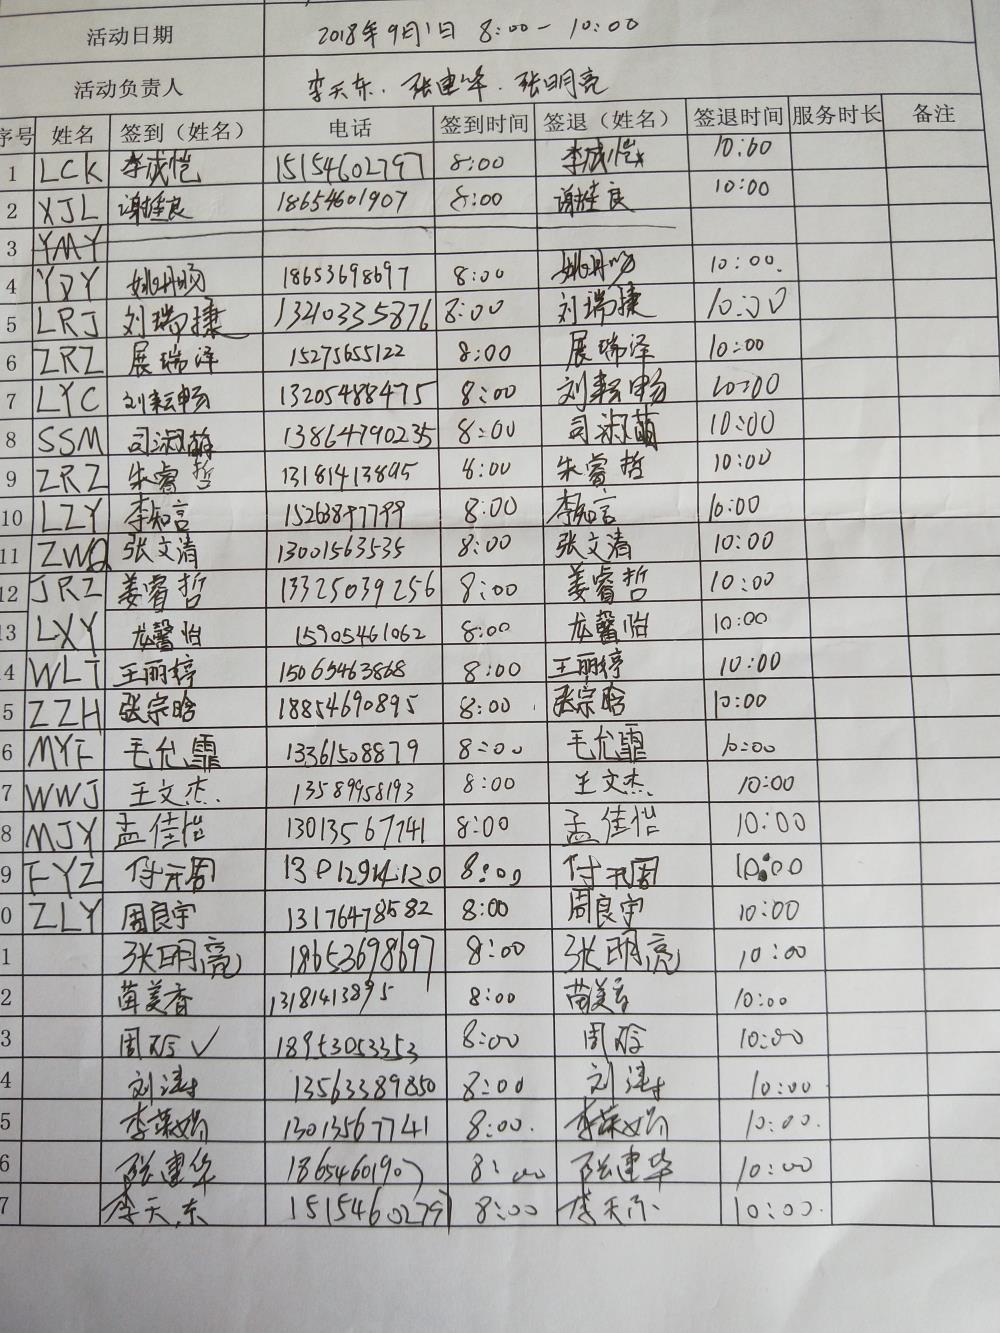 活动日期 2018年9月1日 8:00-10:00
活动负责人 李天东、张建华、张明亮
序号 姓名 签到（姓名） 电话 签到时间 签退（姓名） 签退时间 服务时长 备注
1 LCK 李成恺 15154602797 8:00 李成恺 10:00
2 XJL 谢佳良 18654601907 8:00 谢佳良 10:00
3 YMY
4 YDY 姚丹旸 18653698697 8:00 姚丹旸 10:00.
5 LRJ 刘瑞捷 13210335876 8:00 刘瑞捷 10:00
6 ZRZ 展瑞泽 15275655122 8:00 展瑞泽 10:00
7 LYC 刘耘畅 13205488475 8:00 刘耘畅 10:00
8 SSM 司淑萌 13864790235 8:00 司淑萌 10:00
9 ZRZ 朱睿哲 13181413895 8:00 朱睿哲 10:00
10 LZY 李知言 15263897799 8:00 李知言 10:00
11 ZWQ 张文清 13001563535 8:00 张文清 10:00
12 JRZ 姜睿哲 13325039256 8:00 姜睿哲 10:00
13 LXY 龙馨怡 15905461062 8:00 龙馨怡 10:00
4 WLT 王丽婷 15065463868 8:00 王丽婷 10:00
5 ZZH 张宗晗 18854690895 8:00 张宗晗 10:00
6 MYF 毛允霏 13361508879 8:00 毛允霏 10:00
7 WWJ 王文杰 13589958193 8:00 王文杰 10:00
8 MJY 孟佳怡 13013567741 8:00 孟佳怡 10:00
9 FYZ 付元周 13012914120 8:00 付元周 10:00
0 ZLY 周良宇 13176478582 8:00 周良宇 10:00
1 张明亮 18653698697 8:00 张明亮 10:00
2 苗美香 13181413895 8:00 苗美香 10:00
3 周玲 ✓ 18953053353 8:00 周玲 10:00
4 刘涛 13563389850 8:00 刘涛 10:00
5 李荣娟 13013567741 8:00. 李荣娟 10:00.
6 张建华 18654601907 8:00 张建华 10:00
7 李天东 15154602797 8:00 李天东 10:00.